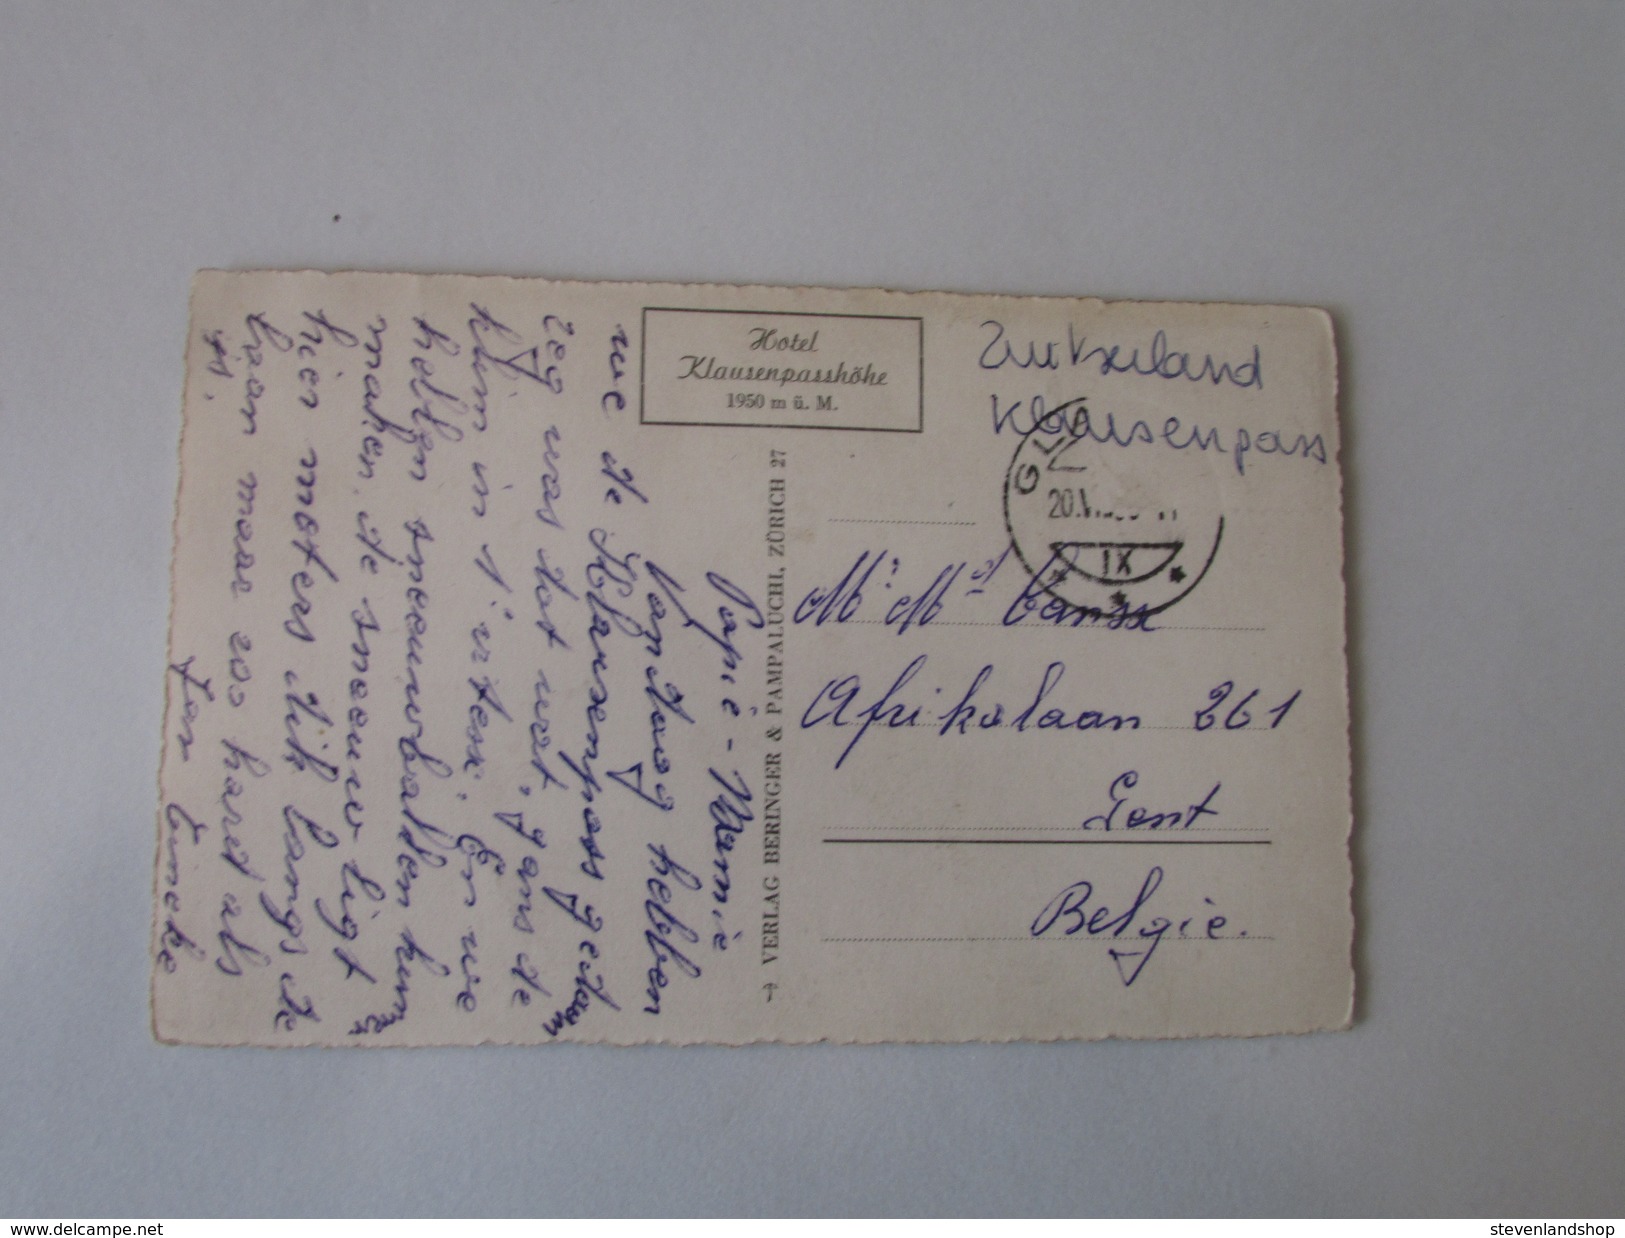 Hotel
Klausenpasshöhe
1950 m ü. M.
Zwitserland
Klausenpass
GL
20.
IX
VERLAG BERINGER & PAMPALUCHI, ZÜRICH 27
Mr Md
Afrikalaan 261
Gent
België.
Papie - Mamie
Vandaag hebben
we de Klausenpass gedaan
zeg was dat wat, gans de
klim in 1e vitess. En we
hebben sneeuwballen kunnen
maken. de sneeuw ligt
hier meters dik langs de
baan maar zoo hard als
ijs.
Jan Tineke
www.delcampe.net
stevenlandshop